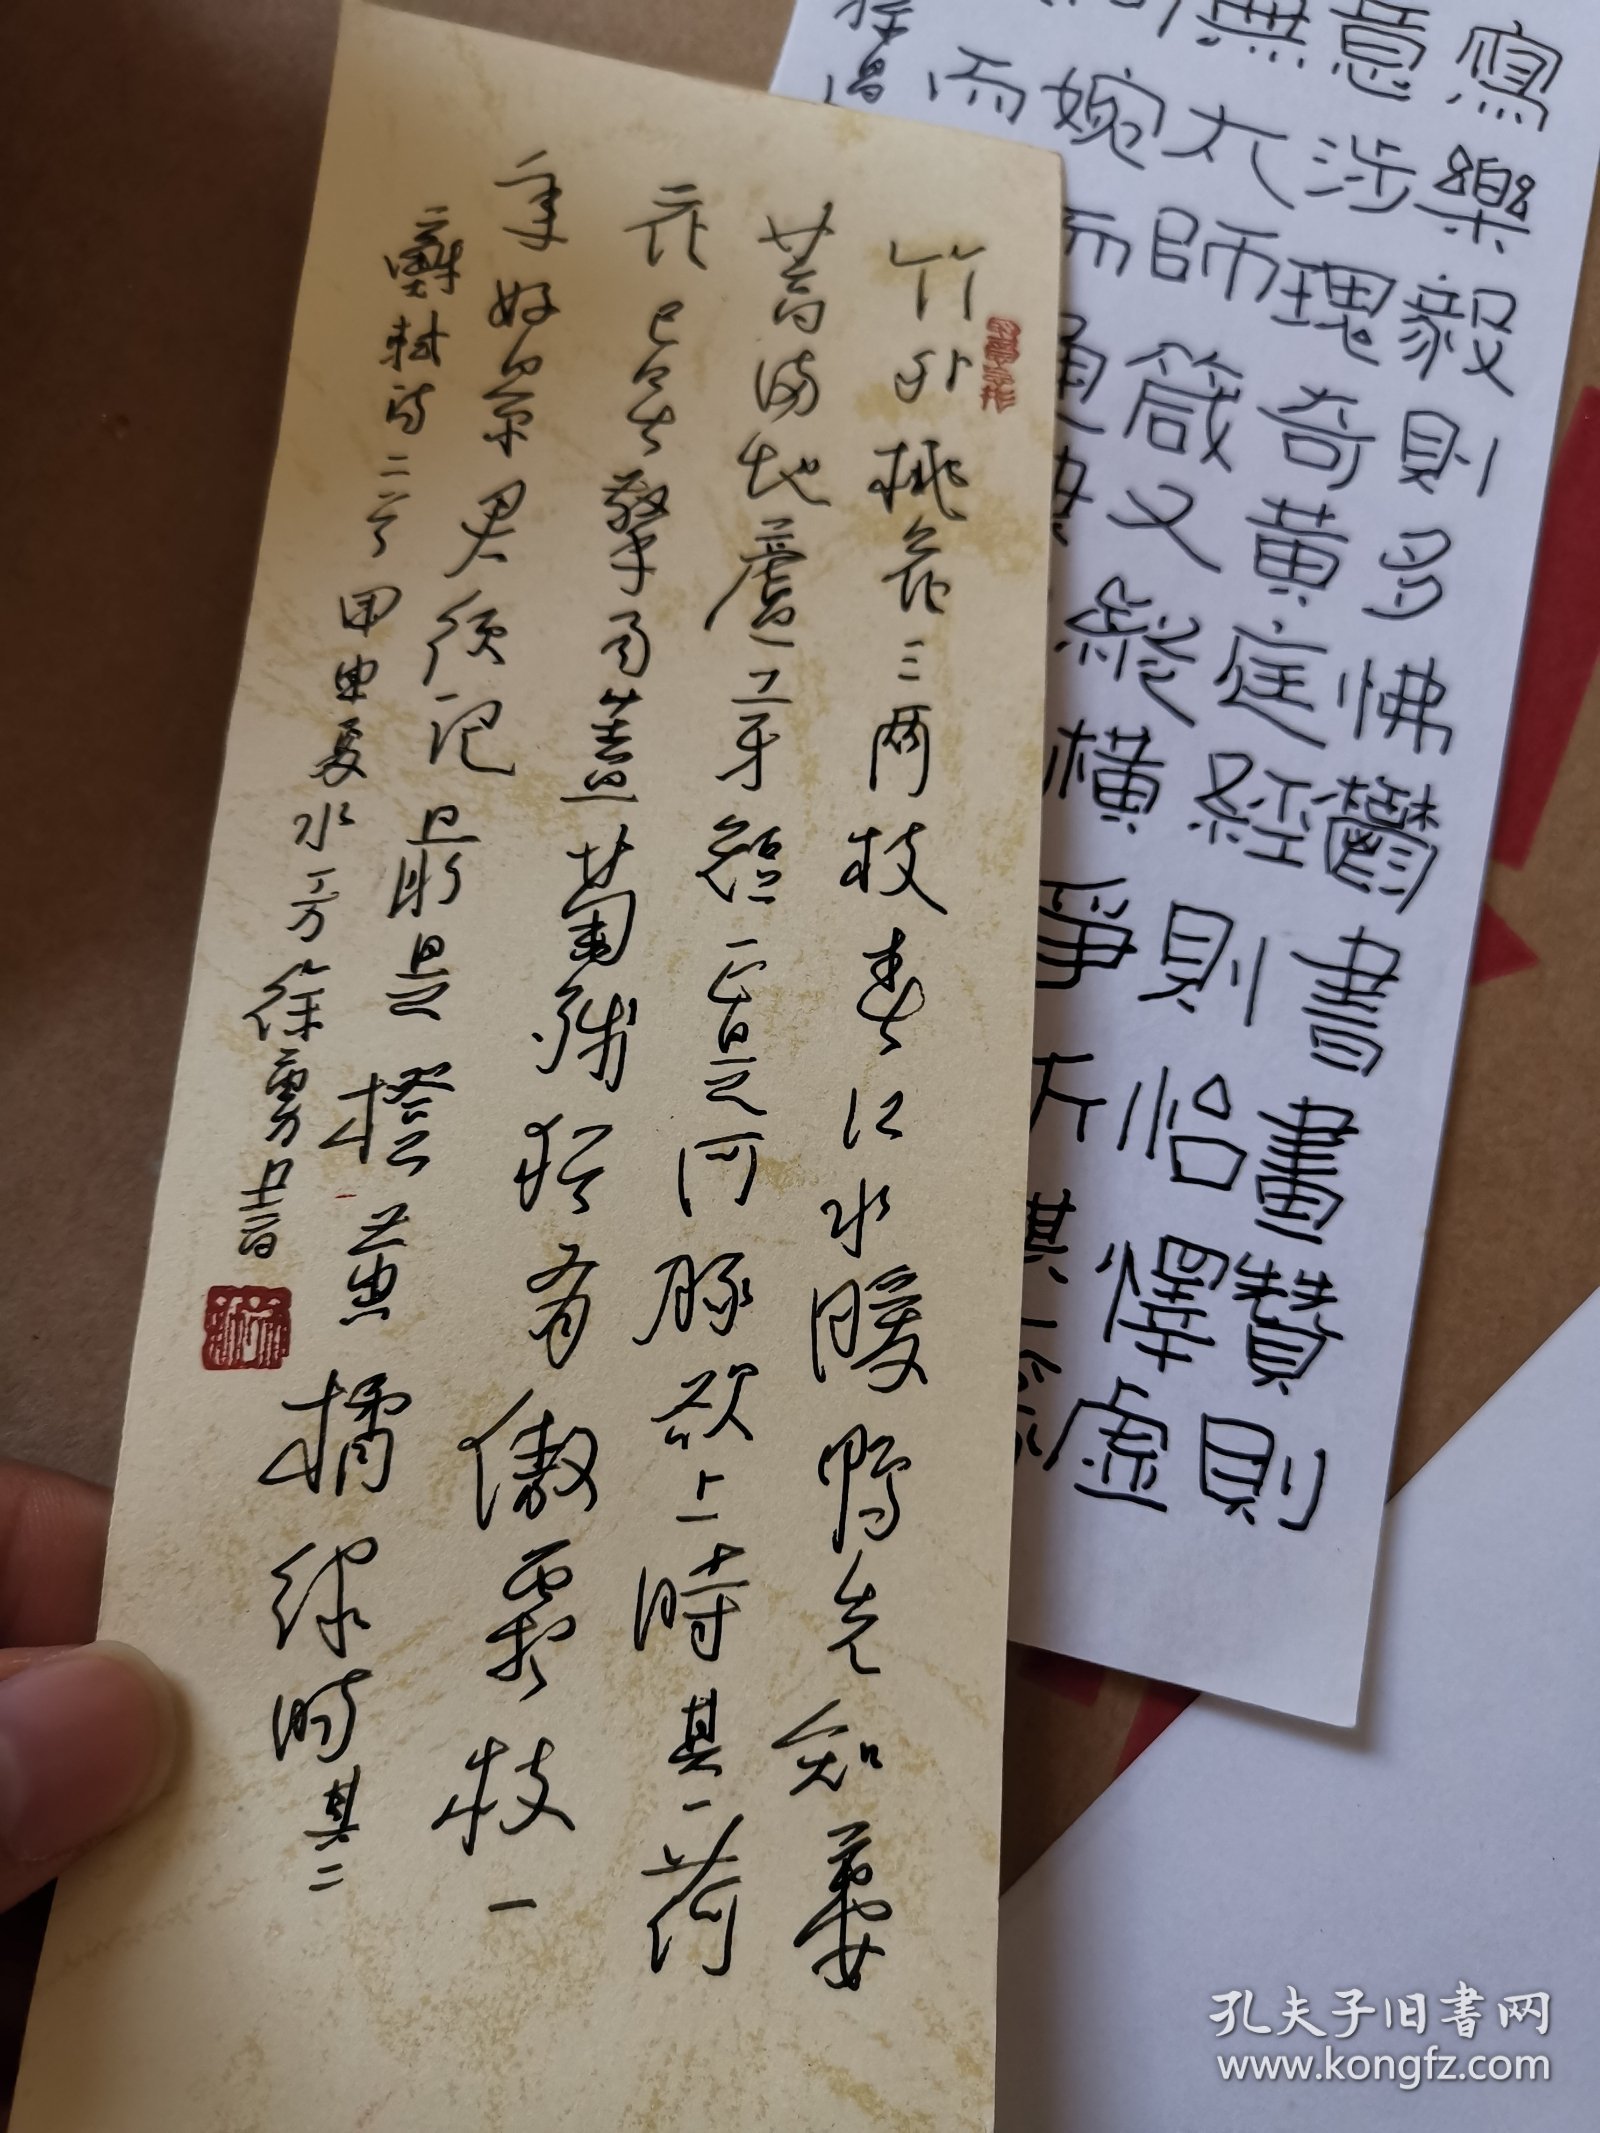 竹外桃花三兩枝春江水暖鴨先知蔞
蒿滿地蘆芽短正是河豚欲上時其一荷
花已無擎雨蓋菊殘猶有傲霜枝一
年好景君須記最是橙黃橘綠時其二
蘇軾詩二首甲申夏水一方徐勇書
寫樂毅則多怫鬱書畫贊則
意涉瑰奇黃庭經則怡懌虛
無太師箴又縱橫爭折其一
婉而通
而
孔夫子旧书网
www.kongfz.com